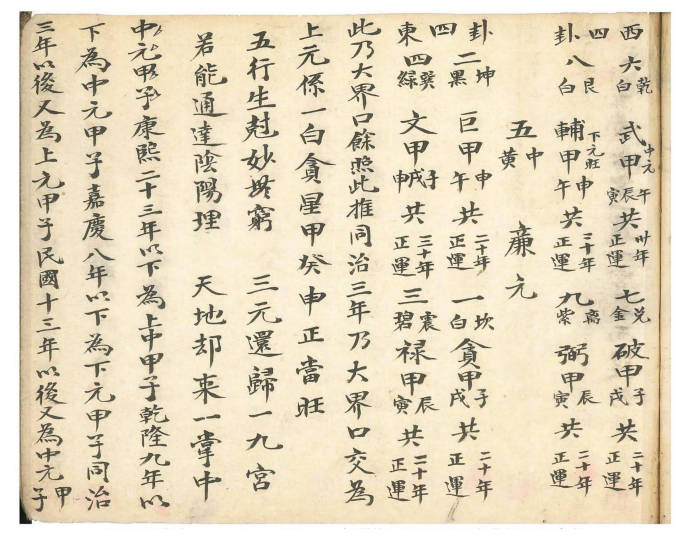 西 六白乾 武 中元 甲午辰寅 共卅年正運 七金兑 破 甲子戌 共二十年正運
四卦 八白艮 輔 下元旺 甲申午 共二十年正運 九紫离 弼 甲辰寅 共二十年正運
五黄中 廉元
卦 二黑坤 巨 甲申午 共二十年正運 一白坎 貪 甲子戌 共二十年正運
東四 四綠巽 文 甲子戌申 共三十年正運 三碧震 禄 甲辰寅 共二十年正運
此乃大界口餘照此推同治三年乃大界口交為
上元係一白貪星甲癸申正當旺
五行生尅妙無窮 三元還歸一九宮
若能通達陰陽理 天地却来一掌中
中元甲子康熙二十三年以下為上中甲子乾隆九年以
下為中元甲子嘉慶八年以下為下元甲子同治
三年以後又為上元甲子民國十三年以後又為中元甲子